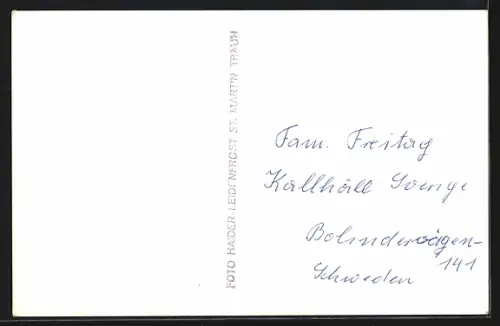 FOTO HAIDER-LEIDENFROST ST. MARTIN TRAUN
Fam. Freitag
Kallhäll
Bolindervägen-
141
Schweden